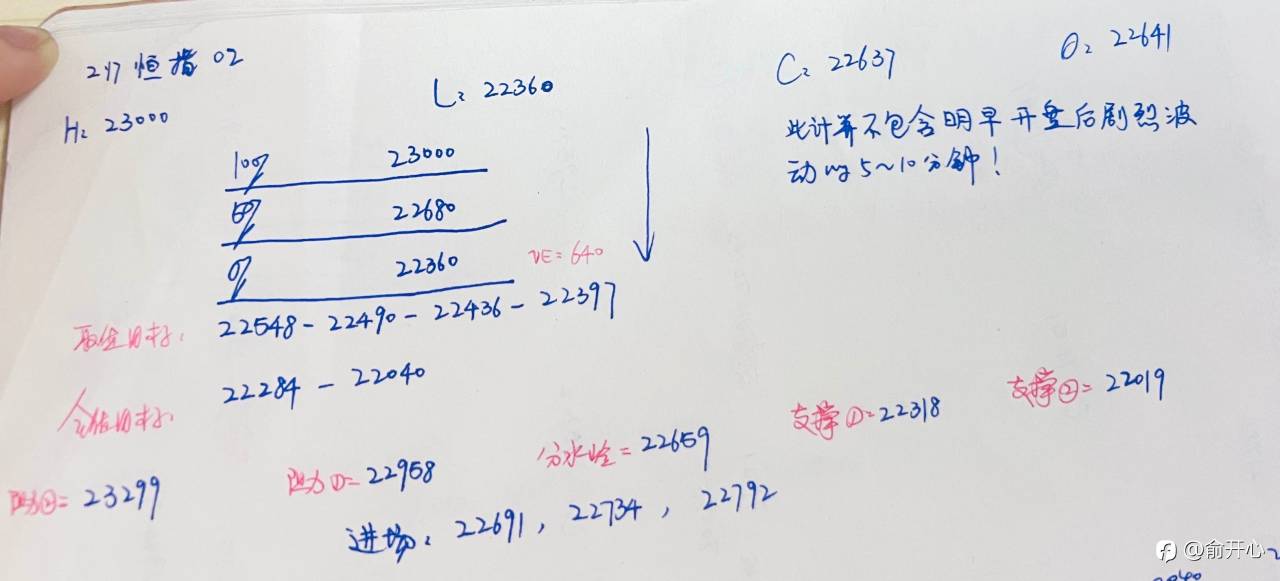 217 恒指 02
H: 23000
L: 22360
C: 22637
O: 22641
此计算不包含明早开盘后剧烈波
动的5~10分钟!
100% 23000
50% 22680
0% 22360
VE=640
22548-22490-22436-22397
22284-22040
阻力②=23299
阻力①=22958
分水岭=22659
支撑①=22318
支撑②=22019
进场: 22691, 22734, 22792
@俞开心